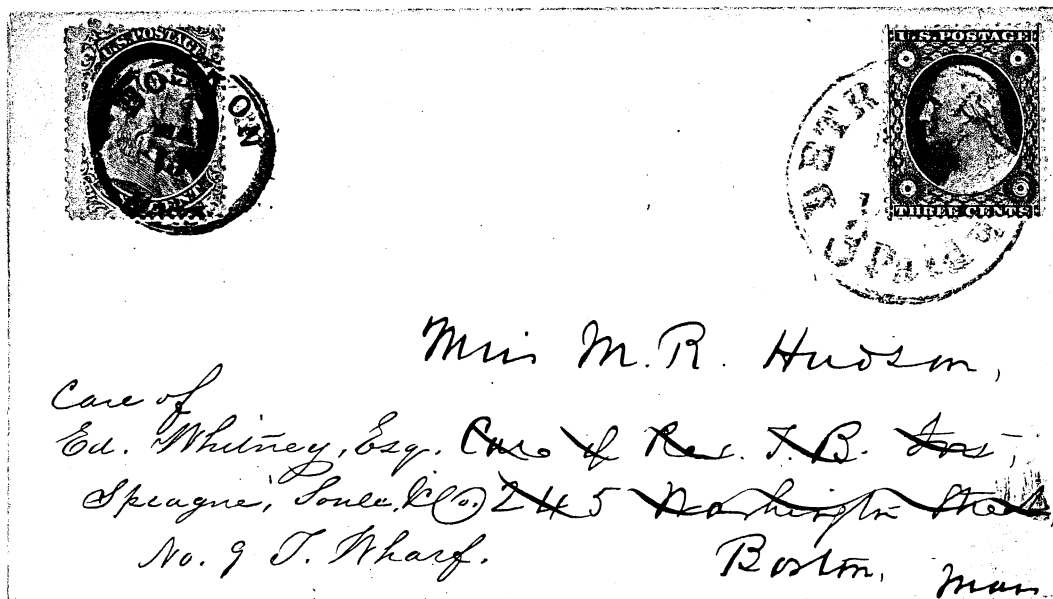 U.S. POSTAGE
BOSTON
U.S. POSTAGE
THREE CENTS
DETR
Paid
Miss M. R. Hudson,
Care of
Ed. Whitney, Esq. Care of Rev. T. B. Fox,
Sprague, Soule, & Co. 245 Washington Street
No. 9 T. Wharf.
Boston, Mass